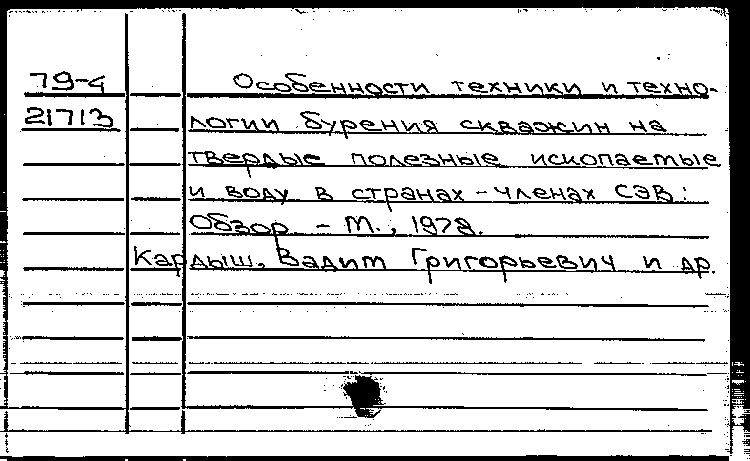 79-4 Особенности техники и техно-
21713 логии бурения скважин на
твердые полезные ископаемые
и воду в странах-членах СЭВ:
Обзор. - М., 1978.
Кардыш, Вадим Григорьевич и др.